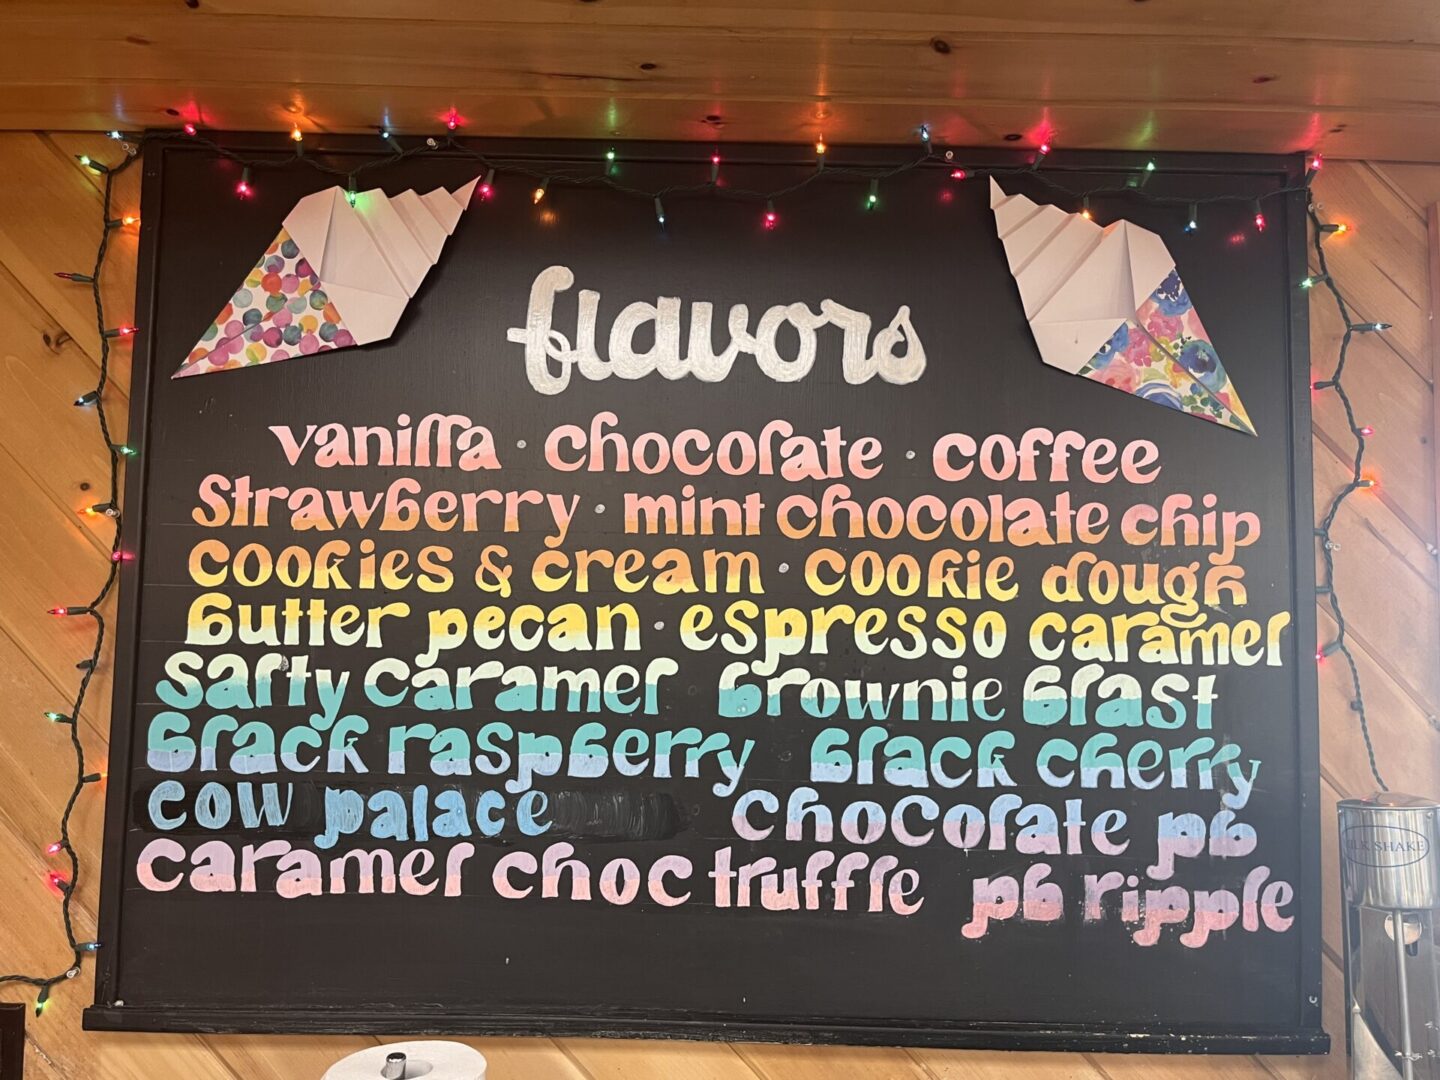 flavors
vanilla · chocolate · coffee
Strawberry · mint chocolate chip
cookies & cream · cookie dough
butter pecan · espresso caramel
salty caramel brownie blast
black raspberry black cherry
cow palace chocolate pb
caramel choc truffle pb ripple
SHAKE